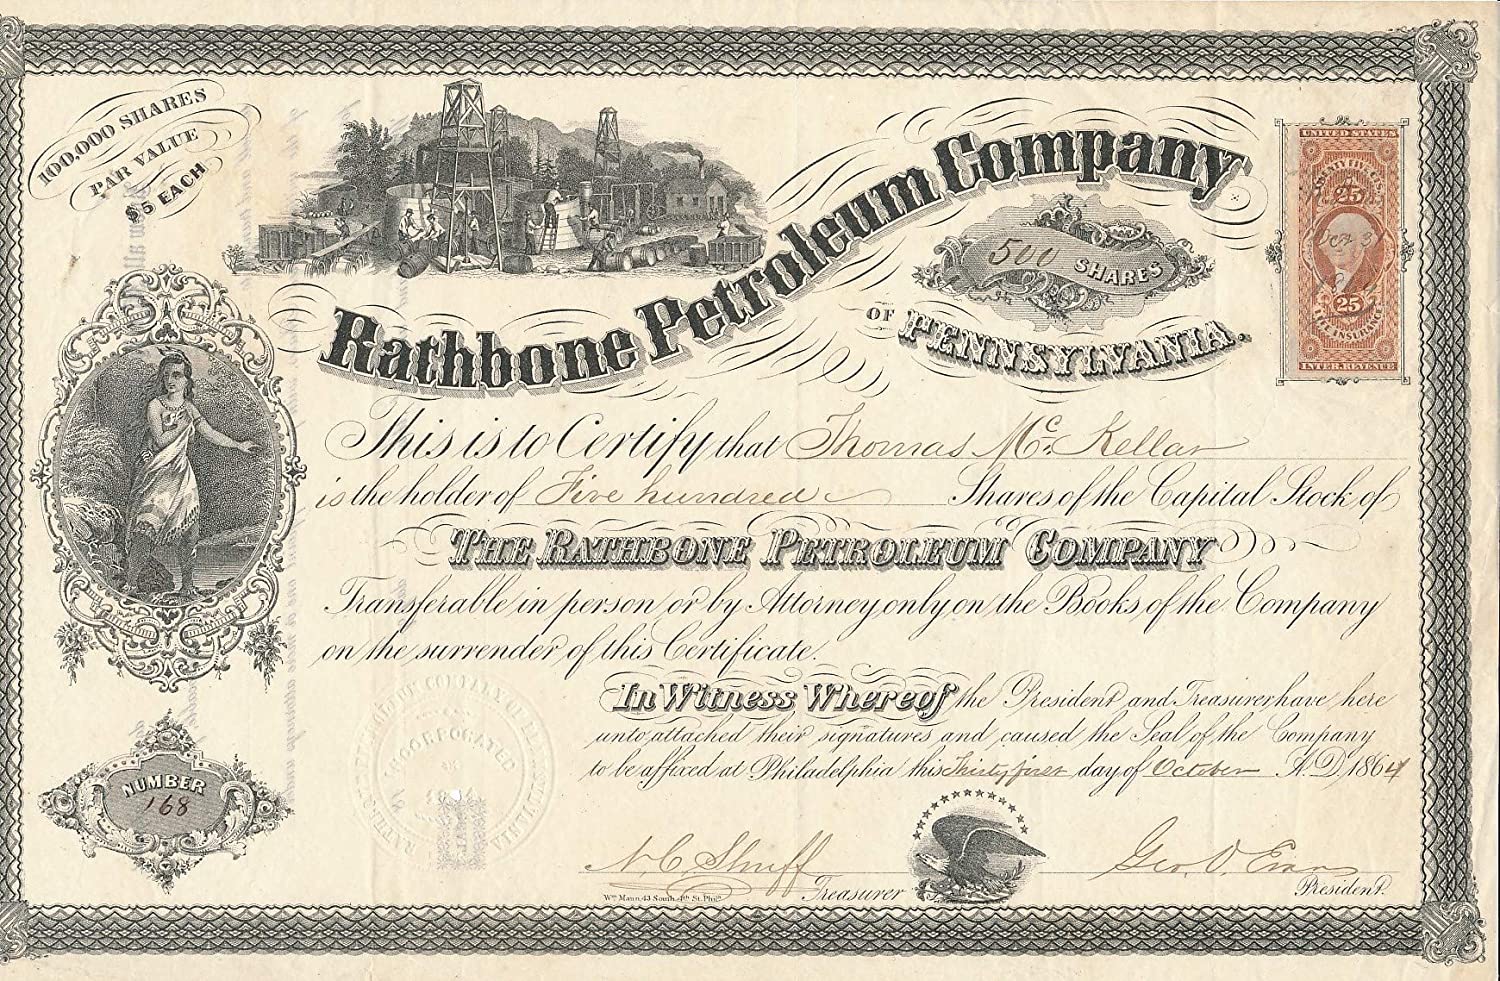 100,000 SHARES
PAR VALUE
$5 EACH
Rathbone Petroleum Company
OF PENNSYLVANIA.
500 SHARES
UNITED STATES
TWENTY FIVE CENTS
25
Oct 31
25
LIFE INSURANCE
INTER. REVENUE
This is to Certify that Thomas Mc. Kellar
is the holder of Five hundred Shares of the Capital Stock of
THE RATHBONE PETROLEUM COMPANY
Transferable in person or by Attorney only on the Books of the Company
on the surrender of this Certificate.
In Witness Whereof the President and Treasurer have here
unto attached their signatures and caused the Seal of the Company
to be affixed at Philadelphia this Thirty first day of October A.D. 1864
INCORPORATED
NUMBER
168
N. C. Shriff
Treasurer
Geo. O. Evans
President.
Wm Mann, 43 South 4th St. Phila.